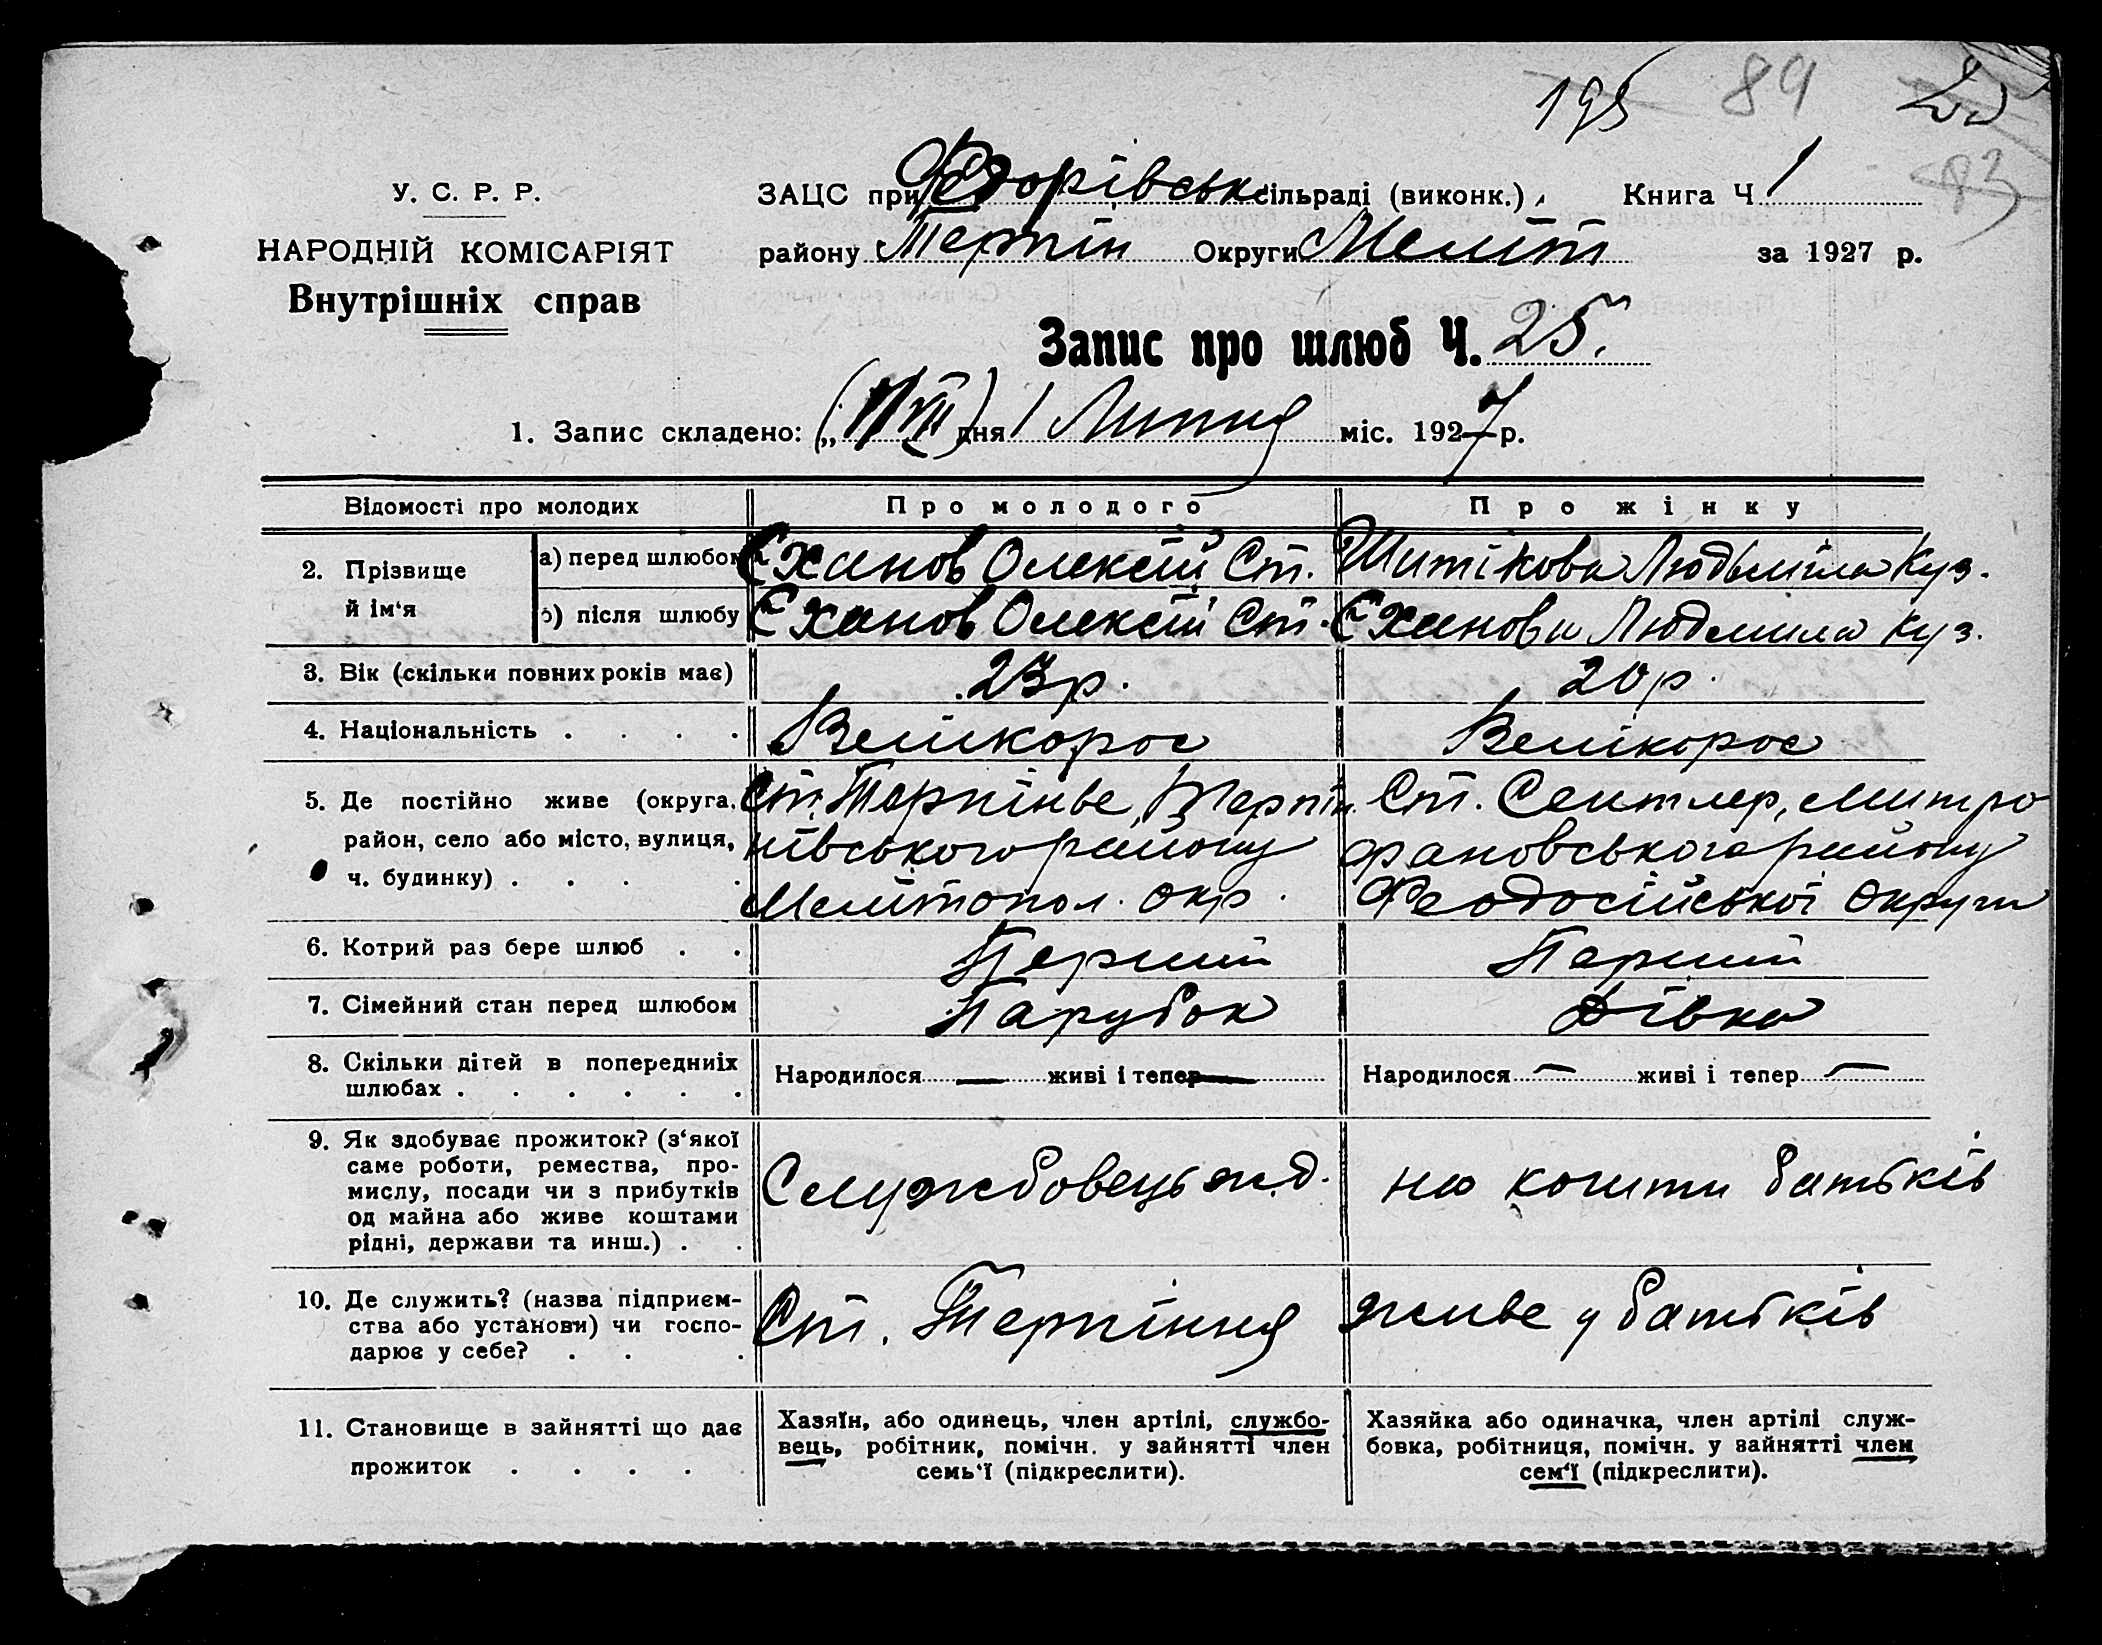 195 89
83
У. С. Р. Р.
НАРОДНІЙ КОМІСАРІЯТ
Внутрішніх справ
ЗАЦС при Федорівськ. сільраді (виконк.), Книга Ч 1
району Терпін Округи Меліт за 1927 р.
Запис про шлюб Ч. 25.
1. Запис складено: („1/VII) дня 1 Липня міс. 1927 р.
Відомості про молодих Про молодого Про жінку
2. Прізвище й ім‘я
а) перед шлюбом Єханов Олексій Ст. Шитікова Людьміла Куз.
б) після шлюбу Єханов Олексій Ст. Єханова Людмила Куз.
3. Вік (скільки повних років має) 23 р. 20 р.
4. Національність . . . . Великорос Велікорос
5. Де постійно живе (округа, район, село або місто, вулиця, ч. будинку) . . . .
Ст. Терпіньє, Терпі-
нівського району
Мелітопол. окр.
Ст. Сеитлер, Митро
фановського району
Феодосійської округи
6. Котрий раз бере шлюб . . Перший Перший
7. Сімейний стан перед шлюбом Парубок Дівка
8. Скільки дітей в попередниіх шлюбах . . . . . .
Народилося — живі і тепер — Народилося — живі і тепер —
9. Як здобуває прожиток? (з‘якої
саме роботи, ремества, про-
мислу, посади чи з прибутків
од майна або живе коштами
рідні, держави та инш.) . .
Службовець ж.д. на кошти батьків
10. Де служить? (назва підприєм-
ства або установи) чи госпо-
дарює у себе? . . .
Ст. Терпіння живе у батьків
11. Становище в зайнятті що дає
прожиток . . . . .
Хазяїн, або одинець, член артілі, службо-
вець, робітник, помічн. у зайнятті член
семь‘ї (підкреслити).
Хазяйка або одиначка, член артілі служ-
бовка, робітниця, помічн. у зайнятті член
сем‘ї (підкреслити).